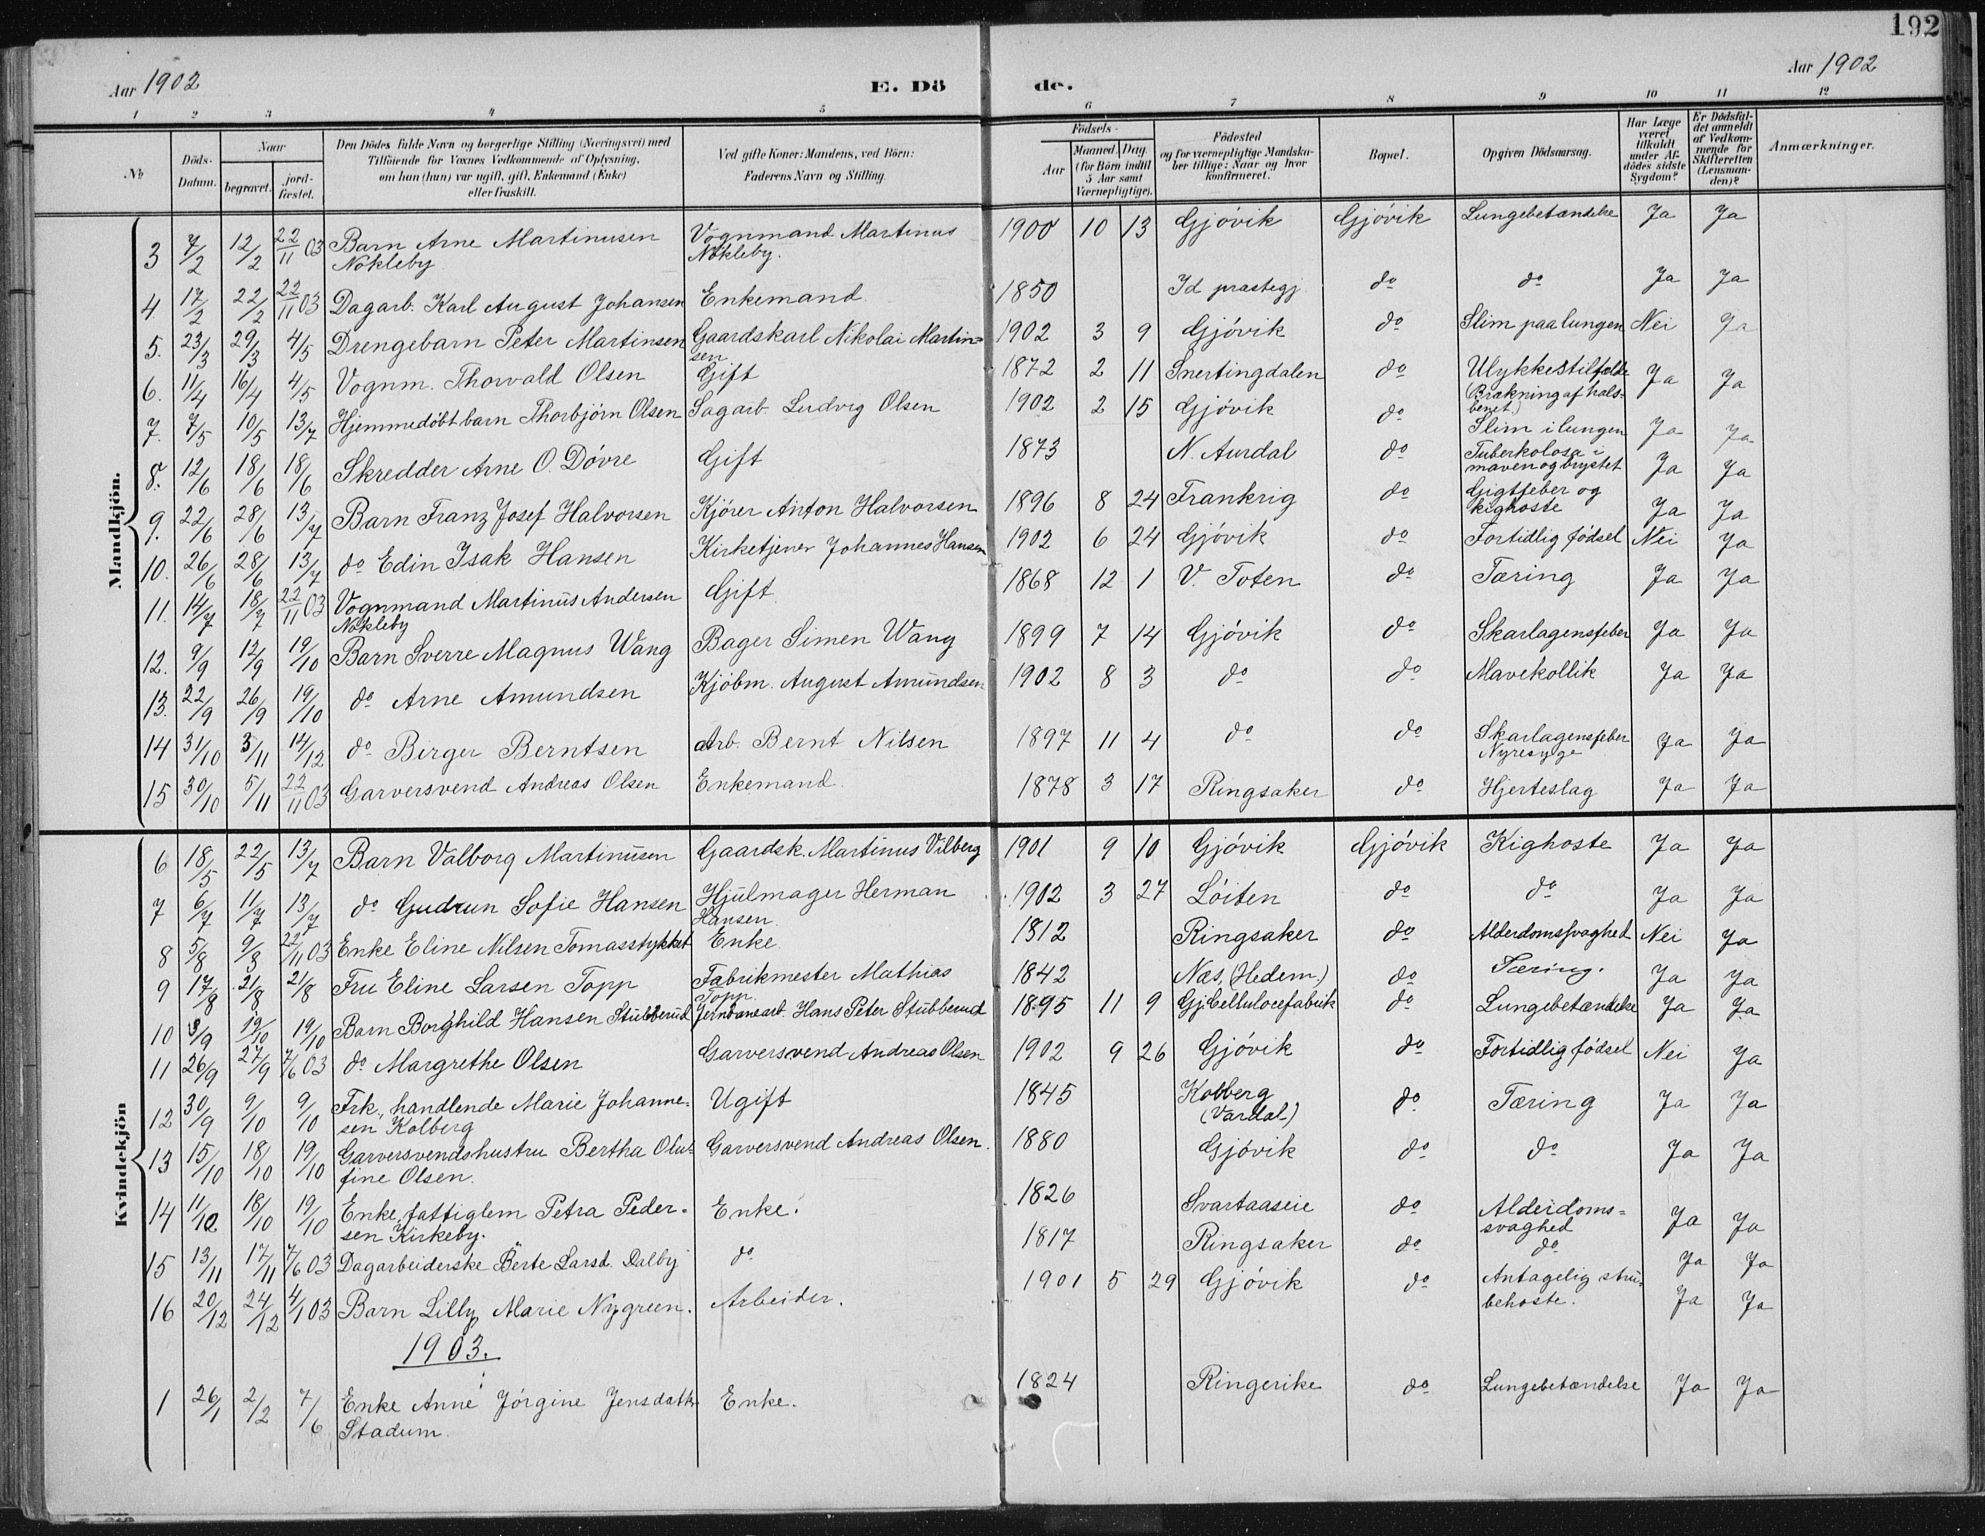 192
Aar 1902 E. Dö de. Aar 1902
1 2 3 4 5 6 7 8 9 10 11 12
№ Döds-Datum. Naar begravet. jordfæstet. Den Dödes fulde Navn og borgerlige Stilling (Næringsvei) med Tilföiende for Voxnes Vedkommende af Oplysning, om han (hun) var ugift, gift, Enkemand (Enke) eller fraskilt. Ved gifte Koner: Mandens, ved Börn: Faderens Navn og Stilling. Födsels- Aar Maaned. Dag. (for Börn indtil 5 Aar samt Værnepligtige). Födested og for værnepligtige Mandskaber tillige: Naar og hvor konfirmeret. Bopæl. Opgiven Dödsaarsag. Har Læge været tilkaldt under Afdödes sidste Sygdom? Er Dödsfaldet anmeldt af Vedkommende for Skifteretten (Lensmanden)? Anmærkninger.
Mandkjön.
3 7/2 12/2 22/11 03 Barn Arne Martinusen Vognmand Martinus 1900 10 13 Gjövik Gjövik Lungebetændelse Ja Ja
Nökleby Nökleby.
4 17/2 22/2 22/11 03 Dagarb. Karl August Johansen Enkemand 1850 Id prastegj. do do Ja Ja
5. 23/3 29/3 4/5 Drengebarn Peter Martinsen Gaardskarl Nikolai Martin= 1902 3 9 Gjövik do Slim paa lungen Nei Ja
sen
6. 11/4 16/4 4/5 Vognm. Thorvald Olsen Gift 1872 2 11 Snertingdalen do Ulykkestilfælde Ja Ja
(Brækning af hals-
benet.)
7. 7/5 10/5 13/7 Hjemmedöbt barn Thorbjörn Olsen Sagarb. Ludvig Olsen 1902 2 15 Gjövik do Slim i lungen Ja Ja
8. 12/6 18/6 18/6 Skredder Arne O. Dövre Gift 1873 N. Aurdal do Tuberkolosa i Ja Ja
maven og brystet
9. 22/6 28/6 13/7 Barn Franz Josef Halvorsen Kjörer Anton Halvorsen 1896 8 24 Frankrig do Gigtfeber og Ja Ja
kighoste
10. 26/6 28/6 13/7 do Edin Isak Hansen Kirketjener Johannes Hansen 1902 6 24 Gjövik do Fortidlig födsel Nei Ja
11. 14/7 18/7 22/11 03 Vognmand Martinus Andersen Gift 1868 12 1 V. Toten do Tæring Ja Ja
Nökleby
12. 9/9 12/9 19/10 Barn Sverre Magnus Wang Bager Simen Wang 1899 7 14 Gjövik do Skarlagensfeber Ja Ja
13. 22/9 26/9 19/10 do Arne Amundsen Kjöbm. August Amundsen 1902 8 3 do do Mavekollik Ja Ja
14 31/10 3/11 14/12 do Birger Berntsen Arb. Bernt Nilsen 1897 11 4 do do Skarlagensfeber Ja Ja
Nyresyge
15 30/10 5/11 22/11 03 Garversvend Andreas Olsen Enkemand. 1878 3 17 Ringsaker do Hjerteslag Ja Ja
Kvindekjön
6 18/5 22/5 13/7 Barn Valborg Martinusen Gaardsk. Martinus Vilberg 1901 9 10 Gjövik Gjövik Kighoste Ja Ja
7 6/7 11/7 13/7 do Gudrun Sofie Hansen Hjulmager Herman 1902 3 27 Löiten do do Ja Ja
Hansen
8 5/8 9/8 22/11 03 Enke Eline Nilsen Tomasstykket Enke. 1812 Ringsaker do Alderdomssvaghed Nei Ja
9 17/8 21/8 21/8 Fru Eline Larsen Topp Fabrikmester Mathias 1842 Næs, (Hedem.) do Tæring. Ja Ja
Topp
10 9/9 19/10 19/10 Barn Borghild Hansen Stubberud Jernbanearb. Hans Peter Stubberud 1895 11 9 Gj. Cellulocefabrik do Lungebetændelse Ja Ja
11 26/9 27/9 7/6 03 do Margrethe Olsen Garversvend Andreas Olsen 1902 9 26 Gjövik do Fortidlig födsel Nei Ja
12 30/9 9/10 9/10 Frk., handlende Marie Johanne= Ugift 1845 Kolberg do Tæring Ja Ja
sen Kolberg (Vardal)
13 15/10 18/10 19/10 Garversvendshustru Bertha Olu= Garversvend Andreas Olsen. 1880 Gjövik do do Ja Ja
fine Olsen.
14 11/10 18/10 19/10 Enke, fattiglem Petra Peder= Enke. 1826 Svartaaseie do Alderdoms= Ja Ja
sen Kirkeby. svaghed
15 13/11 17/11 7/6 03 Dagarbeiderske Berte Larsd. Dalby do 1817 Ringsaker do do Ja Ja
16 20/12 24/12 4/1 03 Barn Lilly Marie Nygreen. Arbeider. 1901 5 29 Gjövik do Antagelig stru- Ja Ja
behoste.
1903.
1 26/1 2/2 7/6 Enke Anne Jörgine Jensdatter Enke. 1824 Ringerike do Lungebetændelse Ja Ja
Stadum.